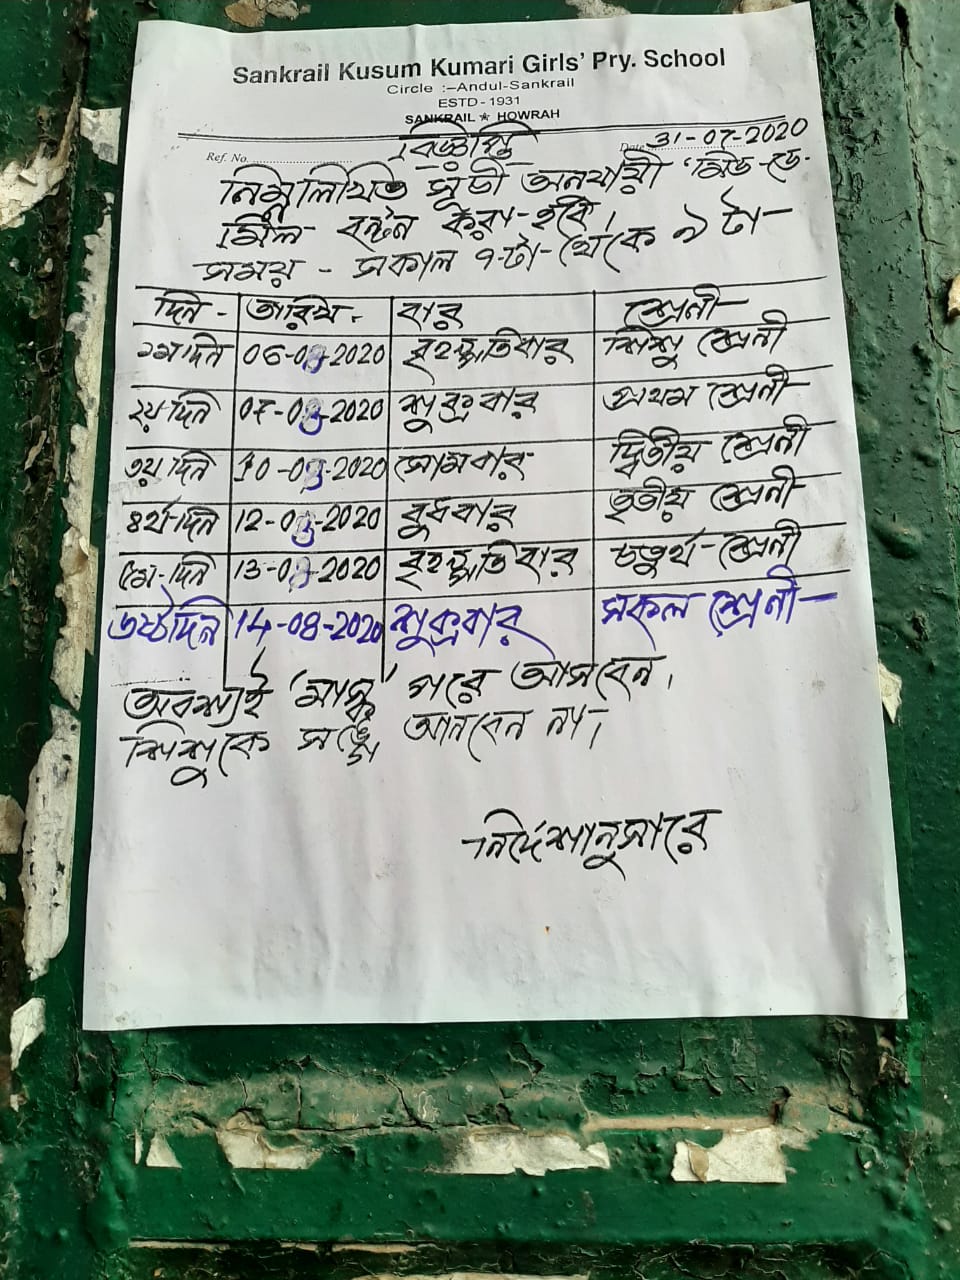 Sankrail Kusum Kumari Girls' Pry. School
Circle :–Andul-Sankrail
ESTD - 1931
SANKRAIL ★ HOWRAH
Ref. No. Date 31-07-2020
বিজ্ঞপ্তি
নিম্নলিখিত সূচী অনুযায়ী 'মিড-ডে-
মিল বন্টন করা হবে।
সময় - সকাল ৭টা থেকে ৯টা
দিন - তারিখ - বার শ্রেনী
১ম দিন 06-08-2020 বৃহস্পতিবার শিশু শ্রেনী
২য় দিন 07-08-2020 শুক্রবার প্রথম শ্রেনী
৩য় দিন 10-08-2020 সোমবার দ্বিতীয় শ্রেনী
৪র্থ দিন 12-08-2020 বুধবার তৃতীয় শ্রেনী
৫ম দিন 13-08-2020 বৃহস্পতিবার চতুর্থ শ্রেনী
৬ষ্ঠ দিন 14-08-2020 শুক্রবার সকল শ্রেনী
অবশ্যই 'মাস্ক' পরে আসবেন।
শিশুকে সঙ্গে আনবেন না।
নির্দেশানুসারে